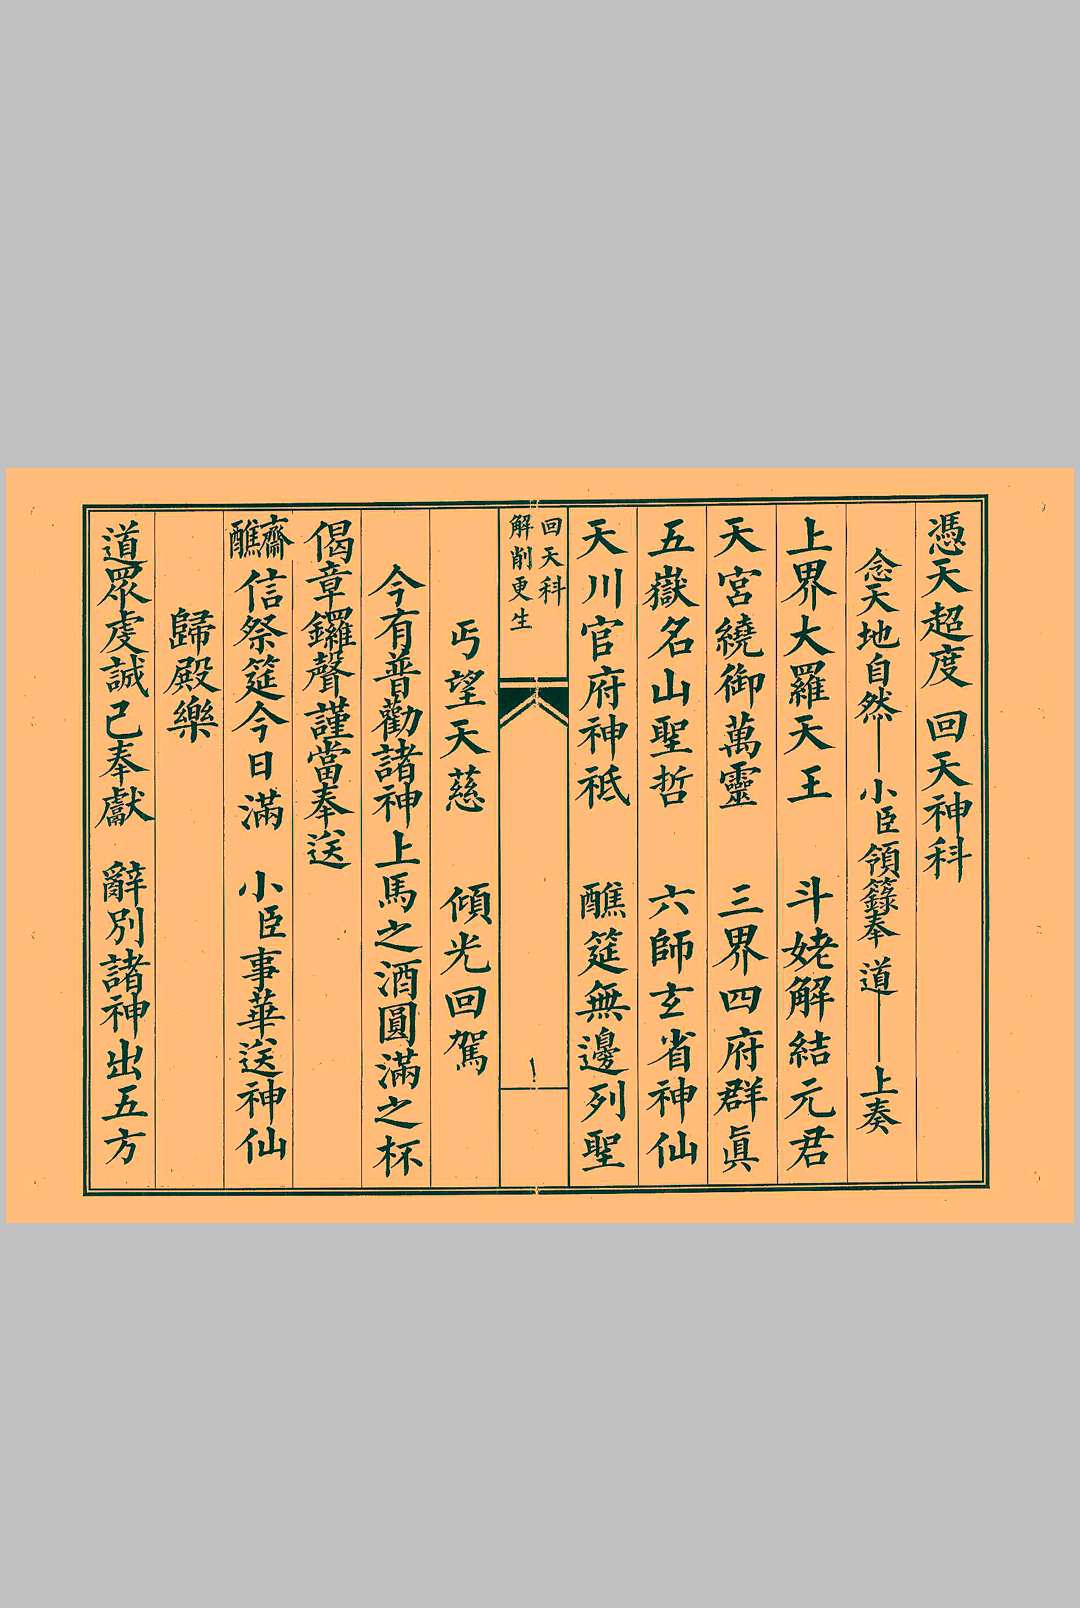 憑天超度 回天神科
念天地自然——小臣領籙奉道——上奏
上界大羅天王 斗姥解結元君
天宮繞御萬靈 三界四府群眞
五嶽名山聖哲 六師玄省神仙
天川官府神祇 醮筵無邊列聖
回天科
解削更生
丐望天慈 傾光回駕
今有普勸諸神上馬之酒圓滿之杯
偈章鑼聲謹當奉送
齋醮信祭筵今日滿 小臣事華送神仙
歸殿樂
道眾虔誠已奉獻 辭別諸神出五方